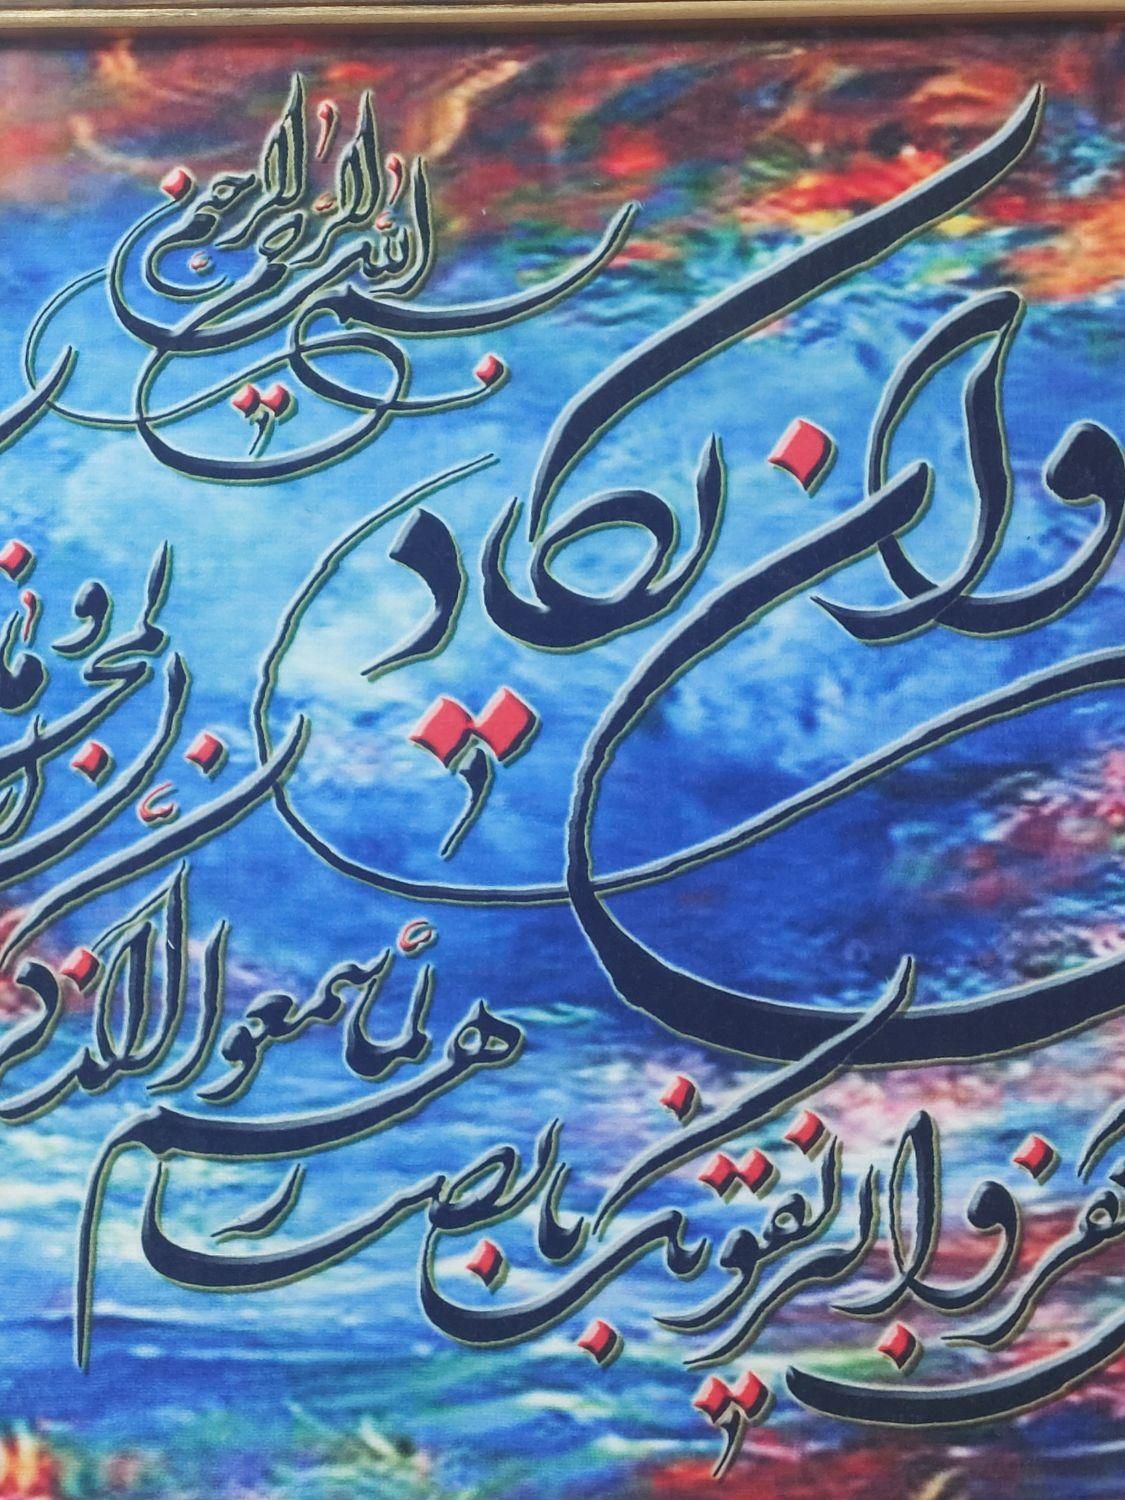 بسم الله الرحمن الرحیم
وان یکاد
کفروا لیزلقونک بابصارهم
لما سمعوا الذکر
لمجنون وما